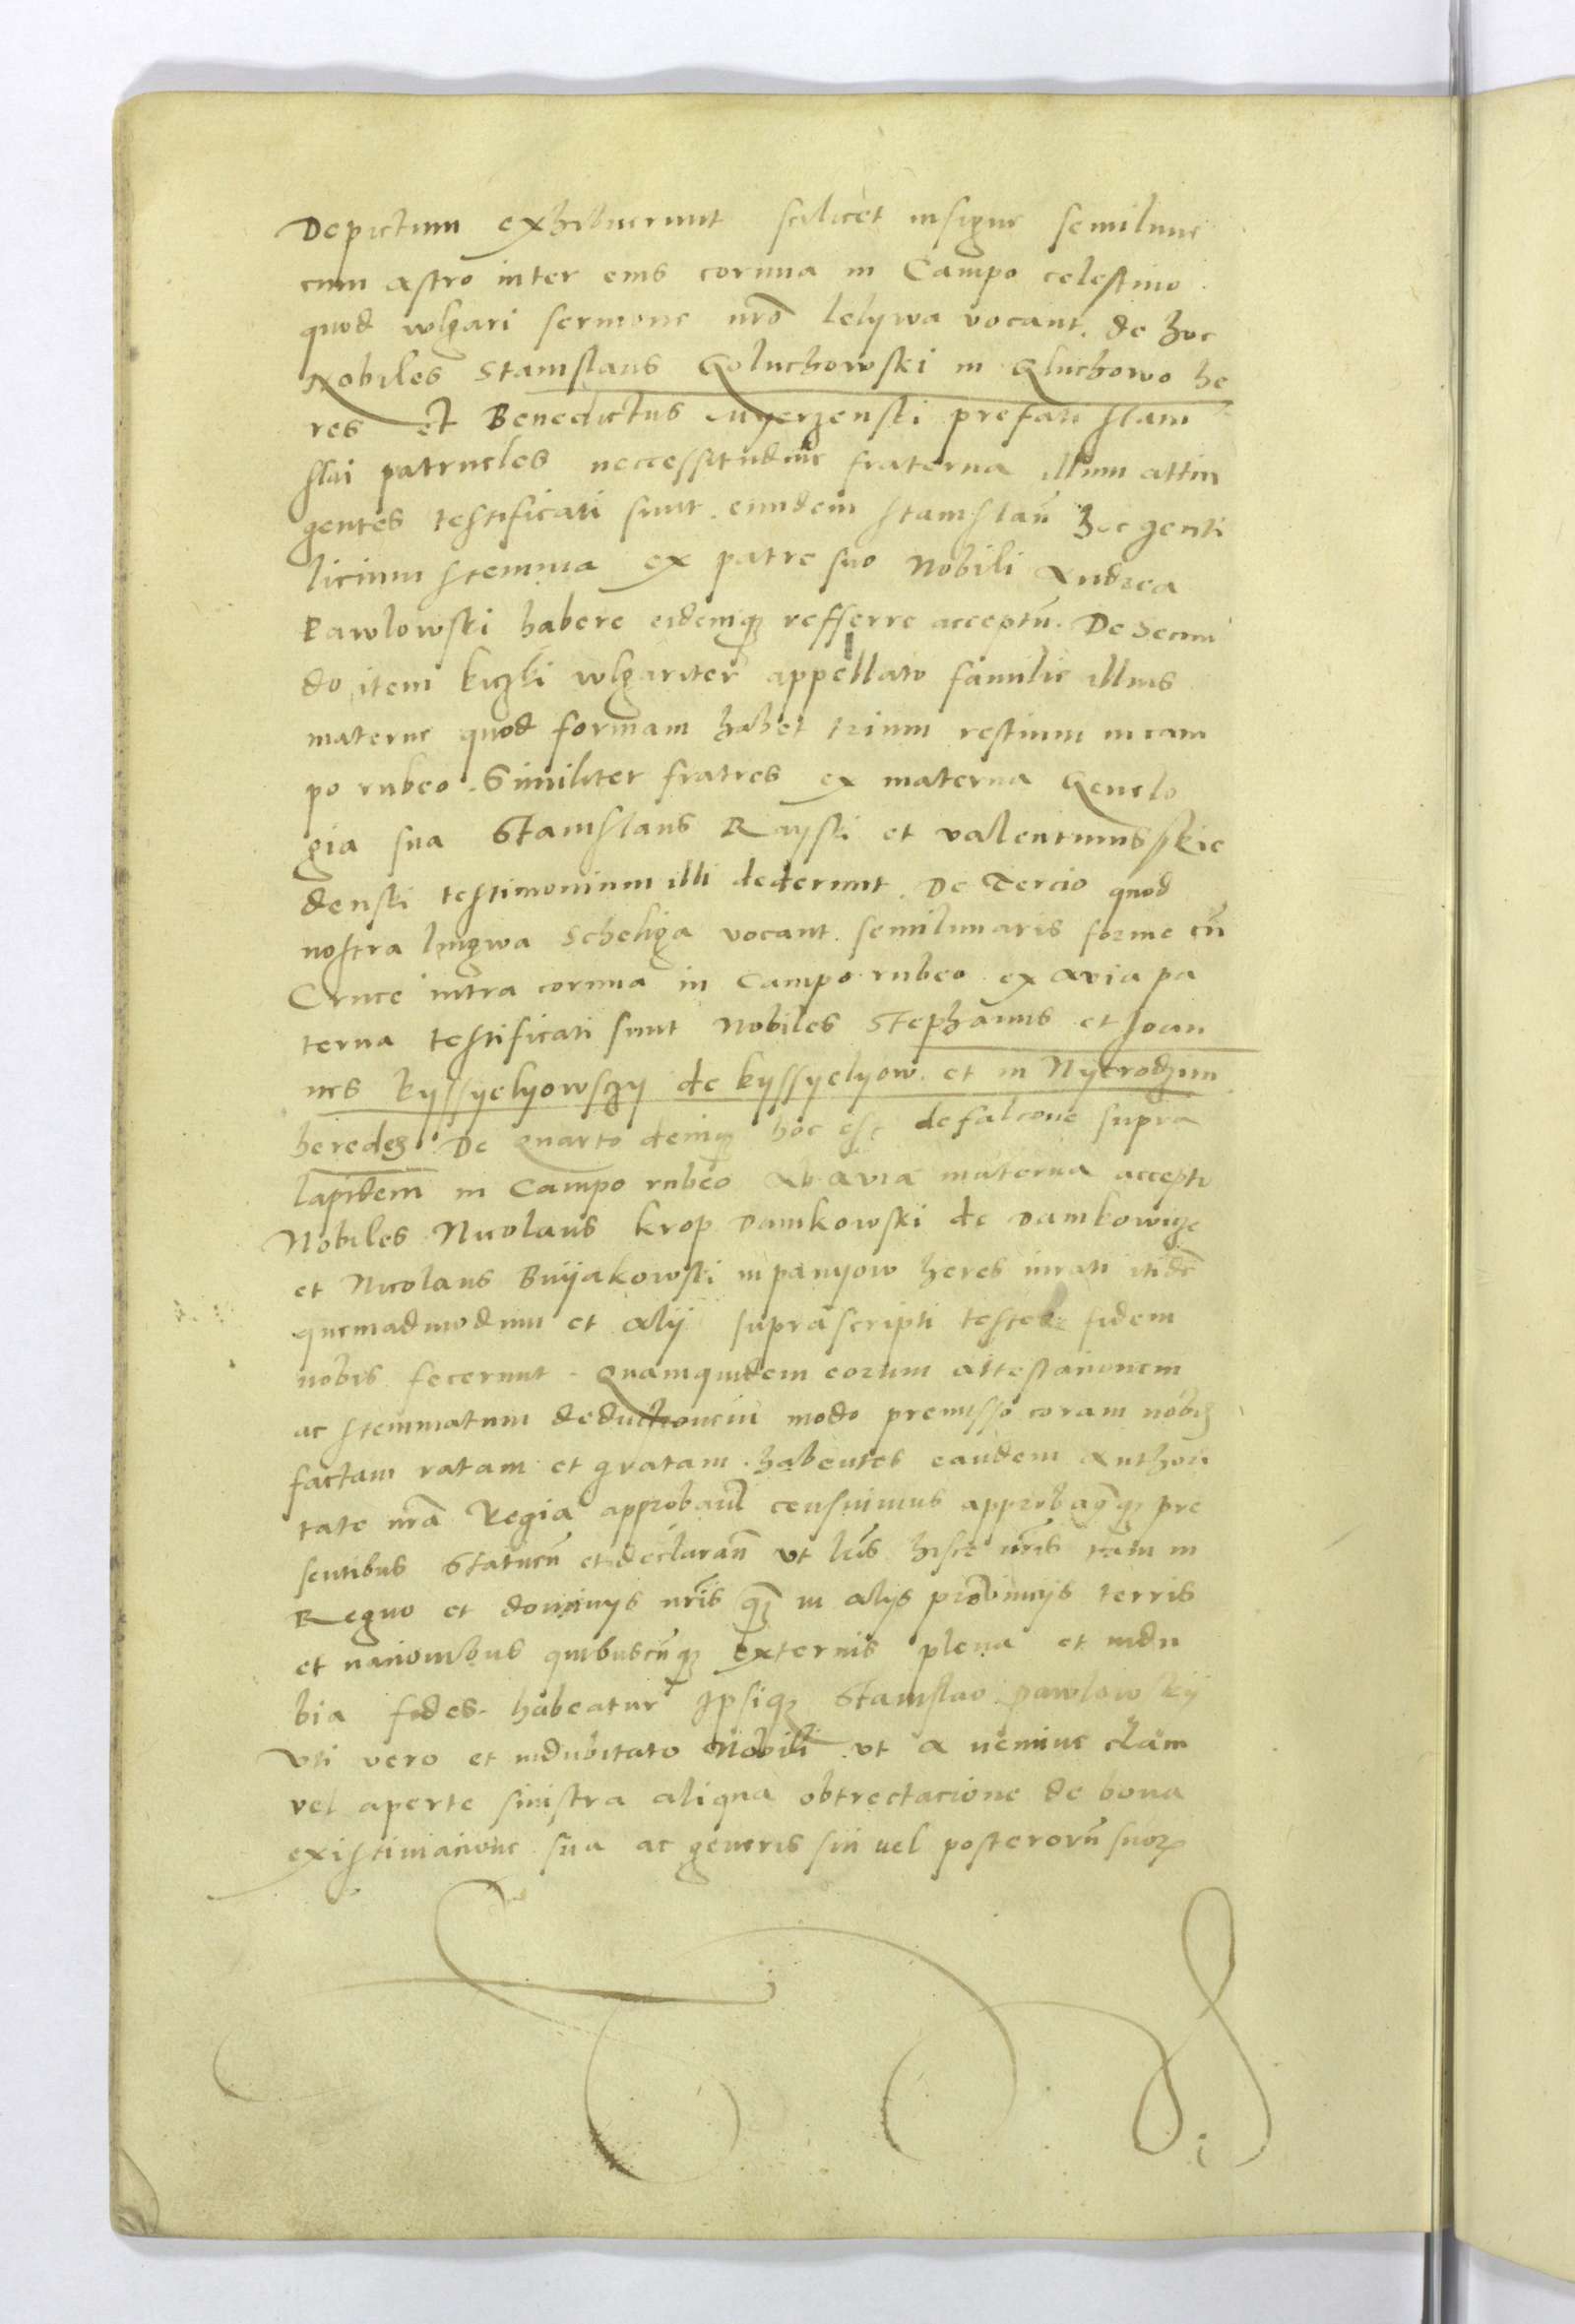 Depictum exhibuerunt scilicet insigne semilune
cum astro inter eius cornua in Campo celestino
quod wlgari sermone nrō lelywa vocant. de hoc
Nobiles Stanislaus Goluchowski in Gluchowo he
res et Benedictus Myerzenski prefati Stani
slai patrueles neccessitudine fraterna illum attin
gentes testificati sunt. eundem Stanislaū hoc genti
licium stemma ex patre suo Nobili Andrea
Pawlowski habere eidemqȝ refferre acceptū. De Secun
do item kiczki wlgariter appellato familie illius
materne quod formam habet trium restium in cam
po rubeo. Similiter fratres ex materna Genelo
gia sua Stanislaus Rayski et valentinus skie
denski testimonium illi dederunt. De Tercio quod
nostra lingwa Scheliga vocant. semilunaris forme cū
Cruce intra cornua in Campo rubeo ex avia pa
terna testificati sunt Nobiles Stephanus et Joan
nes kyssyelyowsczy de kyssyelyow. et in Nyerodzim
heredes. De Quarto deniqȝ hoc est de falcone supra
lapidem in Campo rubeo Ab avia materna accepto
Nobiles Nicolaus krop Damkowski de Damkowicze
et Nicolaus Buyakowski in panyow heres iurati itidē
quemadmodum et alij suprascripti testes fidem
nobis fecerunt. Quamquidem eorum attestationem
ac stemmatum deductionem modo premisso coram nobis
factam ratam et gratam habentes eandem Authori
tate nrā Regia approband censuimus approbamqȝ pre
sentibus Statuen et declaran vt lris hisce nris tam in
Regno et dominijs nris qȝ in alijs provincijs terris
et nationibus quibuscūqȝ externis plena et indu
bia fides habeatur Ipsiqȝ Stanislao pawlowskij
vti vero et indubitato Nobili vt a nemine clam
vel aperte sinistra aliqua obtrectacione de bona
existimacione sua ac generis sui vel posterorū suorꝝ